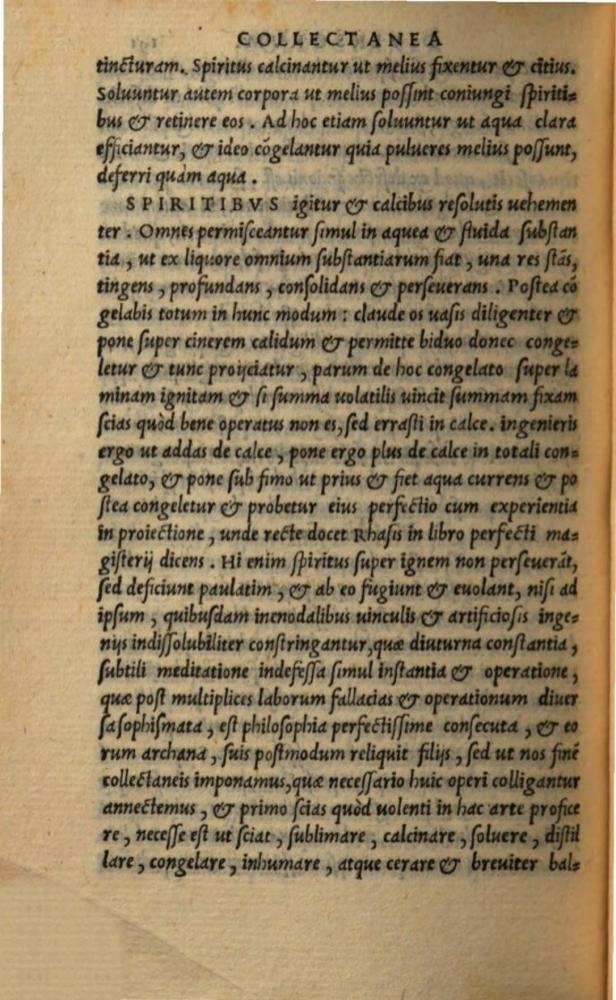 COLLECTANEA
tincturam. Spiritus calcinantur ut melius fixentur & citius.
Soluuntur autem corpora ut melius poſſint coniungi ſpiriti⸗
bus & retinere eos. Ad hoc etiam ſoluuntur ut aqua clara
efficiantur, & ideo cōgelantur quia pulueres melius poſſunt,
deferri quàm aqua.
SPIRITIBVS igitur & calcibus reſolutis uehemen
ter. Omnes permiſceantur ſimul in aquea & fluida ſubſtan
tia, ut ex liquore omnium ſubſtantiarum fiat, una res ſtās,
tingens, profundans, conſolidans & perſeuerans. Poſtea cō
gelabis totum in hunc modum: claude os uaſis diligenter &
pone ſuper cinerem calidum & permitte biduo donec conge⸗
letur & tunc proijciatur, parum de hoc congelato ſuper la
minam ignitam & ſi ſumma uolatilis uincit ſummam fixam
ſcias quòd bene operatus non es, ſed erraſti in calce. ingenieris
ergo ut addas de calce, pone ergo plus de calce in totali con⸗
gelato, & pone ſub fimo ut prius & fiet aqua currens & po
ſtea congeletur & probetur eius perfectio cum experientia
in proiectione, unde recte docet Rhaſis in libro perfecti ma⸗
giſterij dicens. Hi enim ſpiritus ſuper ignem non perſeuerāt,
ſed deficiunt paulatim, & ab eo fugiunt & euolant, niſi ad
ipſum, quibuſdam inenodalibus uinculis & artificioſis inge⸗
nijs indiſſolubiliter conſtringantur, quæ diuturna conſtantia,
ſubtili meditatione indefeſſa ſimul inſtantia & operatione,
quæ poſt multiplices laborum fallacias & operationum diuer
ſa ſophiſmata, eſt philoſophia perfectiſſime conſecuta, & eo
rum archana, ſuis poſtmodum reliquit filijs, ſed ut nos finē
collectaneis imponamus, quæ neceſſario huic operi colligantur
annectemus, & primo ſcias quòd uolenti in hac arte profice
re, neceſſe eſt ut ſciat, ſublimare, calcinare, ſoluere, diſtil
lare, congelare, inhumare, atque cerare & breuiter bal⸗